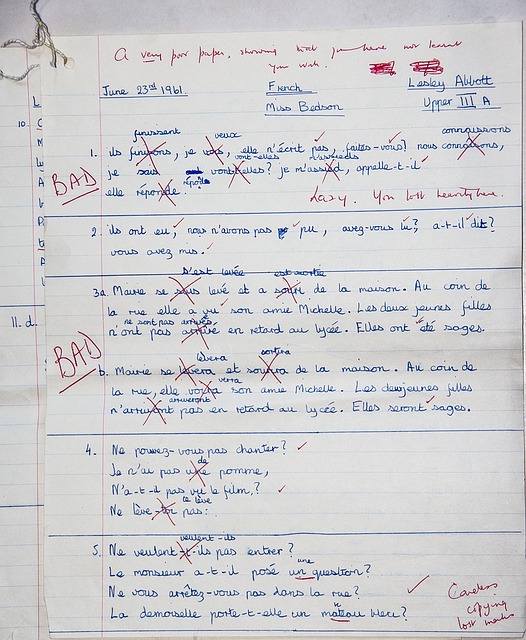 A very poor paper, showing that you have not learnt
your work.
June 23rd 1961. French Lesley Abbott
Miss Bedson Upper III A
finissent veux connaissons
1. ils finirons, je vous, elle n'écrit pas, faites-vous? nous connaisons,
vont-elles m'assieds
je sais vont-elles? je m'assied, appelle-t-il
répond
elle réponde.
BAD
Lazy. You lost heavily here.
2. ils ont eu, nous n'avons pas pu, avez-vous lu? a-t-il dit?
vous avez mis.
s'est levée est sortie
3a. Marie se suis levé et a souri de la maison. Au coin de
la rue elle a vu son amie Michelle. Les deux jeunes filles
ne sont pas arrivés
n'ont pas arrivé en retard au lycée. Elles ont été sages.
BAD
lèvera sortira
b. Marie se levera et sourira de la maison. Au coin de
verra
la rue, elle voira son amie Michelle. Les deux jeunes filles
arriveront
n'arrivont pas en retard au lycée. Elles seront sages.
4. Ne pouvez-vous pas chanter?
de
Je n'ai pas une pomme,
N'a-t-il pas vu le film,?
te lève
Ne lève pas.
veulent-ils
5. Ne veulent-t-ils pas entrer?
une
Le monsieur a-t-il posé un question?
Ne vous arrêtez-vous pas dans la rue?
La demoiselle porte-t-elle un mateau bleu?
Careless
copying
lost marks
10.
11. d.